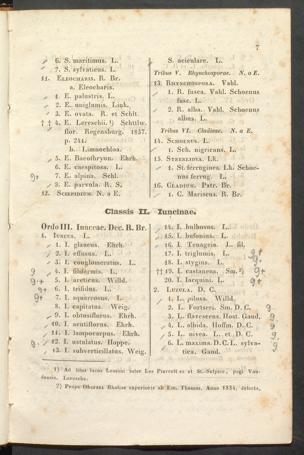 7
6. S. maritimus. L.
7. S. sylvaticus. L.
11. ELEOCHARIS. R. Br.
a. Eleocharis.
1. E. palustris. L.
2. E. uniglumis. Link.
3. E. ovata. R. et Schlt.
4. E. Lereschii. Schulw.
flor. Regensburg. 1837.
p. 241.
b. Limnochloa.
5. E. Baeothryon. Ehrh.
6. E. caespitosa. L.
7. E. alpina. Schl.
8. E. parvula. R. S.
12. SCHŒNIDIUM. N. a E.
S. aciculare. L.
Tribus V. Rhynchosporae. N. a E.
13. RHYNCHOSPORA. Vahl.
1. R. fusca. Vahl. Schoenus
fusc. L.
2. R. alba. Vahl. Schoenus
albus. L.
Tribus VI. Cladinae. N. a E.
14. SCHOENUS. L.
1. Sch. nigricans. L.
15. STREBLIDIA. Lk.
1. St. ferruginea. Lk. Schoe-
nus ferrug. L.
16. CLADIUM. Patr. Br.
1. C. Mariscus. R. Br.
Classis II. Iuncinae.
Ordo III. Iunceae. Dec. R. Br.
1. IUNCUS. L.
1. I. glaucus. Ehrh.
2. I. effusus. L.
3. I. conglomeratus. L.
4. I. filiformis. L.
5. I. arcticus. Willd.
6. I. trifidus. L.
7. I. squarrosus. L.
8. I. capitatus. Weig.
9. I. obtusiflorus. Ehrh.
10. I. acutiflorus. Ehrh.
11. I. lampocarpus. Ehrh.
12. I. ustulatus. Hoppe.
13. I. subverticillatus. Wulf.
14. I. bulbosus. L.
15. I. bufonius. L.
16. I. Tenageia. L. fil.
17. I. triglumis. L.
18. I. stygius. L.
19. I. castaneus. Sm. 2)
20. I. Iacquini. L.
2. LUZULA. D. C.
1. L. pilosa. Willd.
2. L. Forsteri. Sm. D. C.
3. L. flavescens. Host. Gaud.
4. L. albida. Hoffm. D. C.
5. L. nivea. L. et D. C.
6. L. maxima. D. C. L. sylva-
tica. Gaud.
1) Ad litus lacus Lemani inter Les Pierrettes et St. Sulpice, pagi Vau-
densis. Leresche.
2) Prope Oberans Rhaetiae superioris ab Em. Thomas. Anno 1834. detecta.